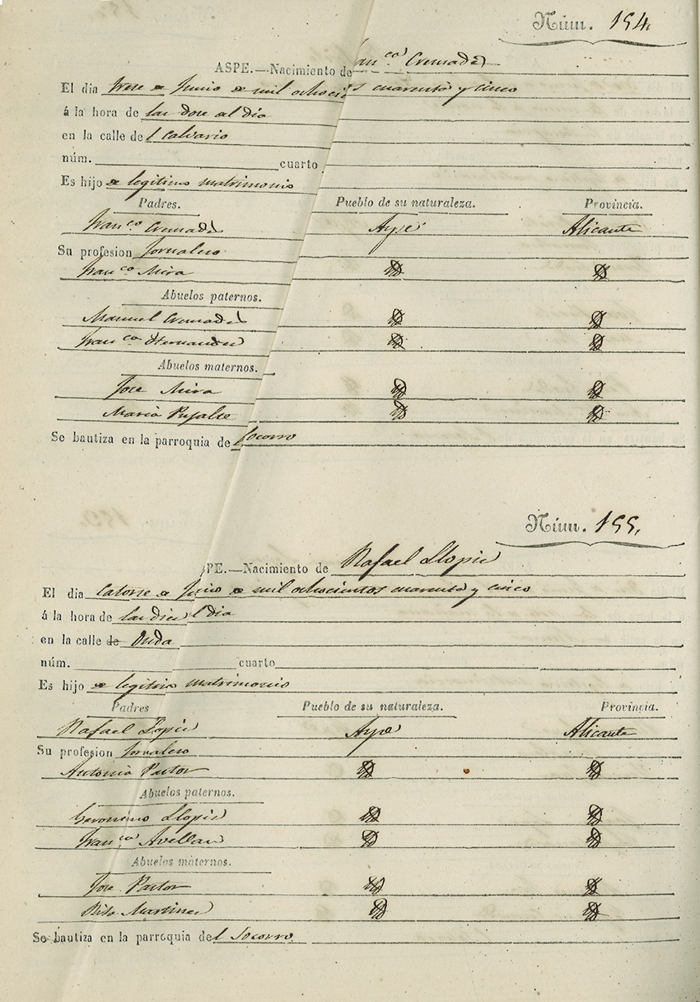 Núm. 154.
ASPE.—Nacimiento de Fran.ca Cremades
El dia trece de Junio de mil ochocientos cuarenta y cinco
á la hora de las doce al dia
en la calle del Calvario
núm. cuarto
Es hijo de legitimo matrimonio
Padres. Pueblo de su naturaleza. Provincia.
Fran.co Cremades Aspe Alicante
Su profesion Jornalero
Fran.ca Mira
Abuelos paternos.
Manuel Cremades
Fran.ca Hernandez
Abuelos maternos.
Jose Mira
Maria Pujalte
Se bautiza en la parroquia del Socorro
Núm. 155.
SPE.—Nacimiento de Rafael Llopis
El dia catorse de Junio de mil ochocientos cuarenta y cinco
á la hora de las diez al dia
en la calle de Onda
núm. cuarto
Es hijo de legitimo matrimonio
Padres Pueblo de su naturaleza. Provincia.
Rafael Llopis Aspe Alicante
Su profesion Jornalero
Antonia Pastor
Abuelos paternos.
Geronimo Llopis
Fran.ca Avellan
Abuelos maternos.
Jose Pastor
Rita Martinez
Se bautiza en la parroquia del Socorro